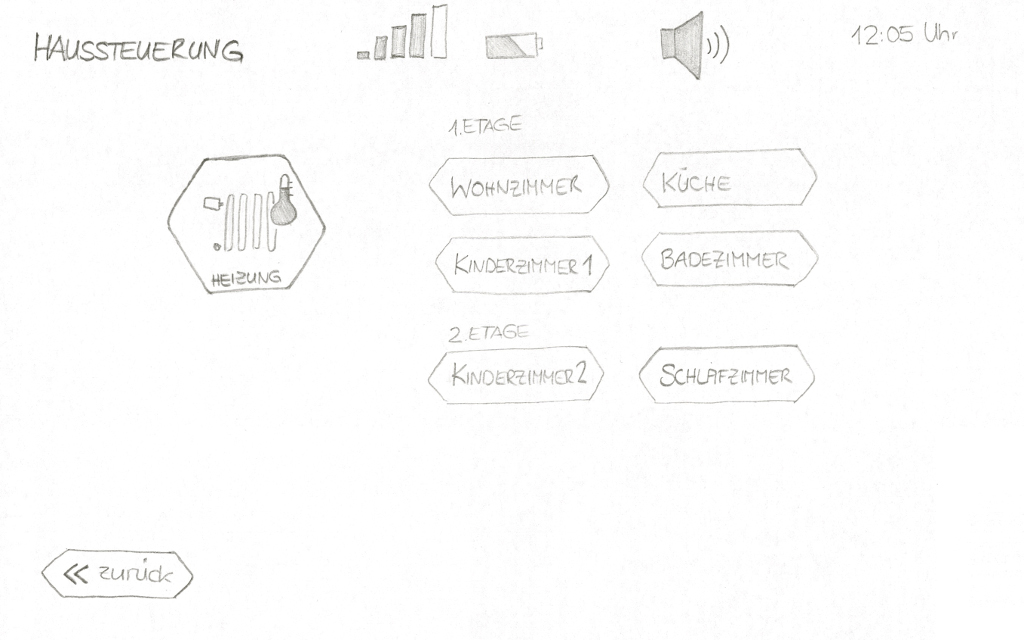 HAUSSTEUERUNG
12:05 Uhr
1.ETAGE
WOHNZIMMER
KÜCHE
KINDERZIMMER 1
BADEZIMMER
HEIZUNG
2.ETAGE
KINDERZIMMER 2
SCHLAFZIMMER
« zurück